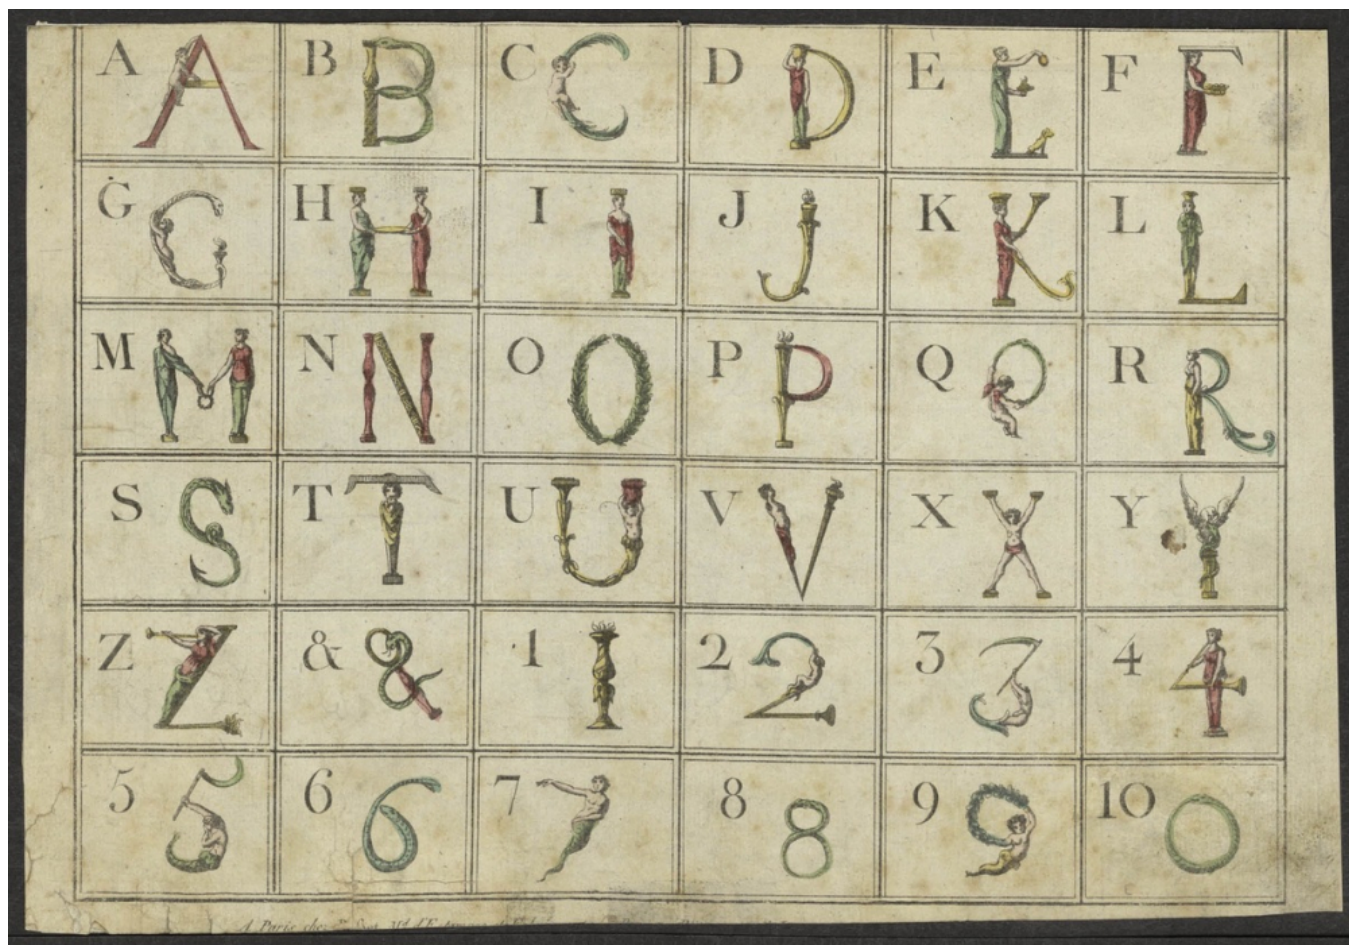 A A B B C C D D E E F F
G G H H I I J J K K L L
M M N N O O P P Q Q R R
S S T T U U V V X X Y Y
Z Z & & 1 1 2 2 3 3 4 4
5 5 6 6 7 7 8 8 9 9 10 0
A Paris chez